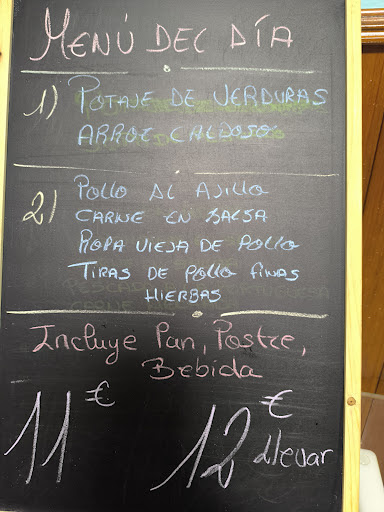 MENÚ DEL DÍA
1) POTAJE DE VERDURAS
ARROZ CALDOSO
2) POLLO AL AJILLO
CARNE EN SALSA
ROPA VIEJA DE POLLO
TIRAS DE POLLO FINAS
HIERBAS
Incluye Pan, Postre,
Bebida
11€ 12€
llevar